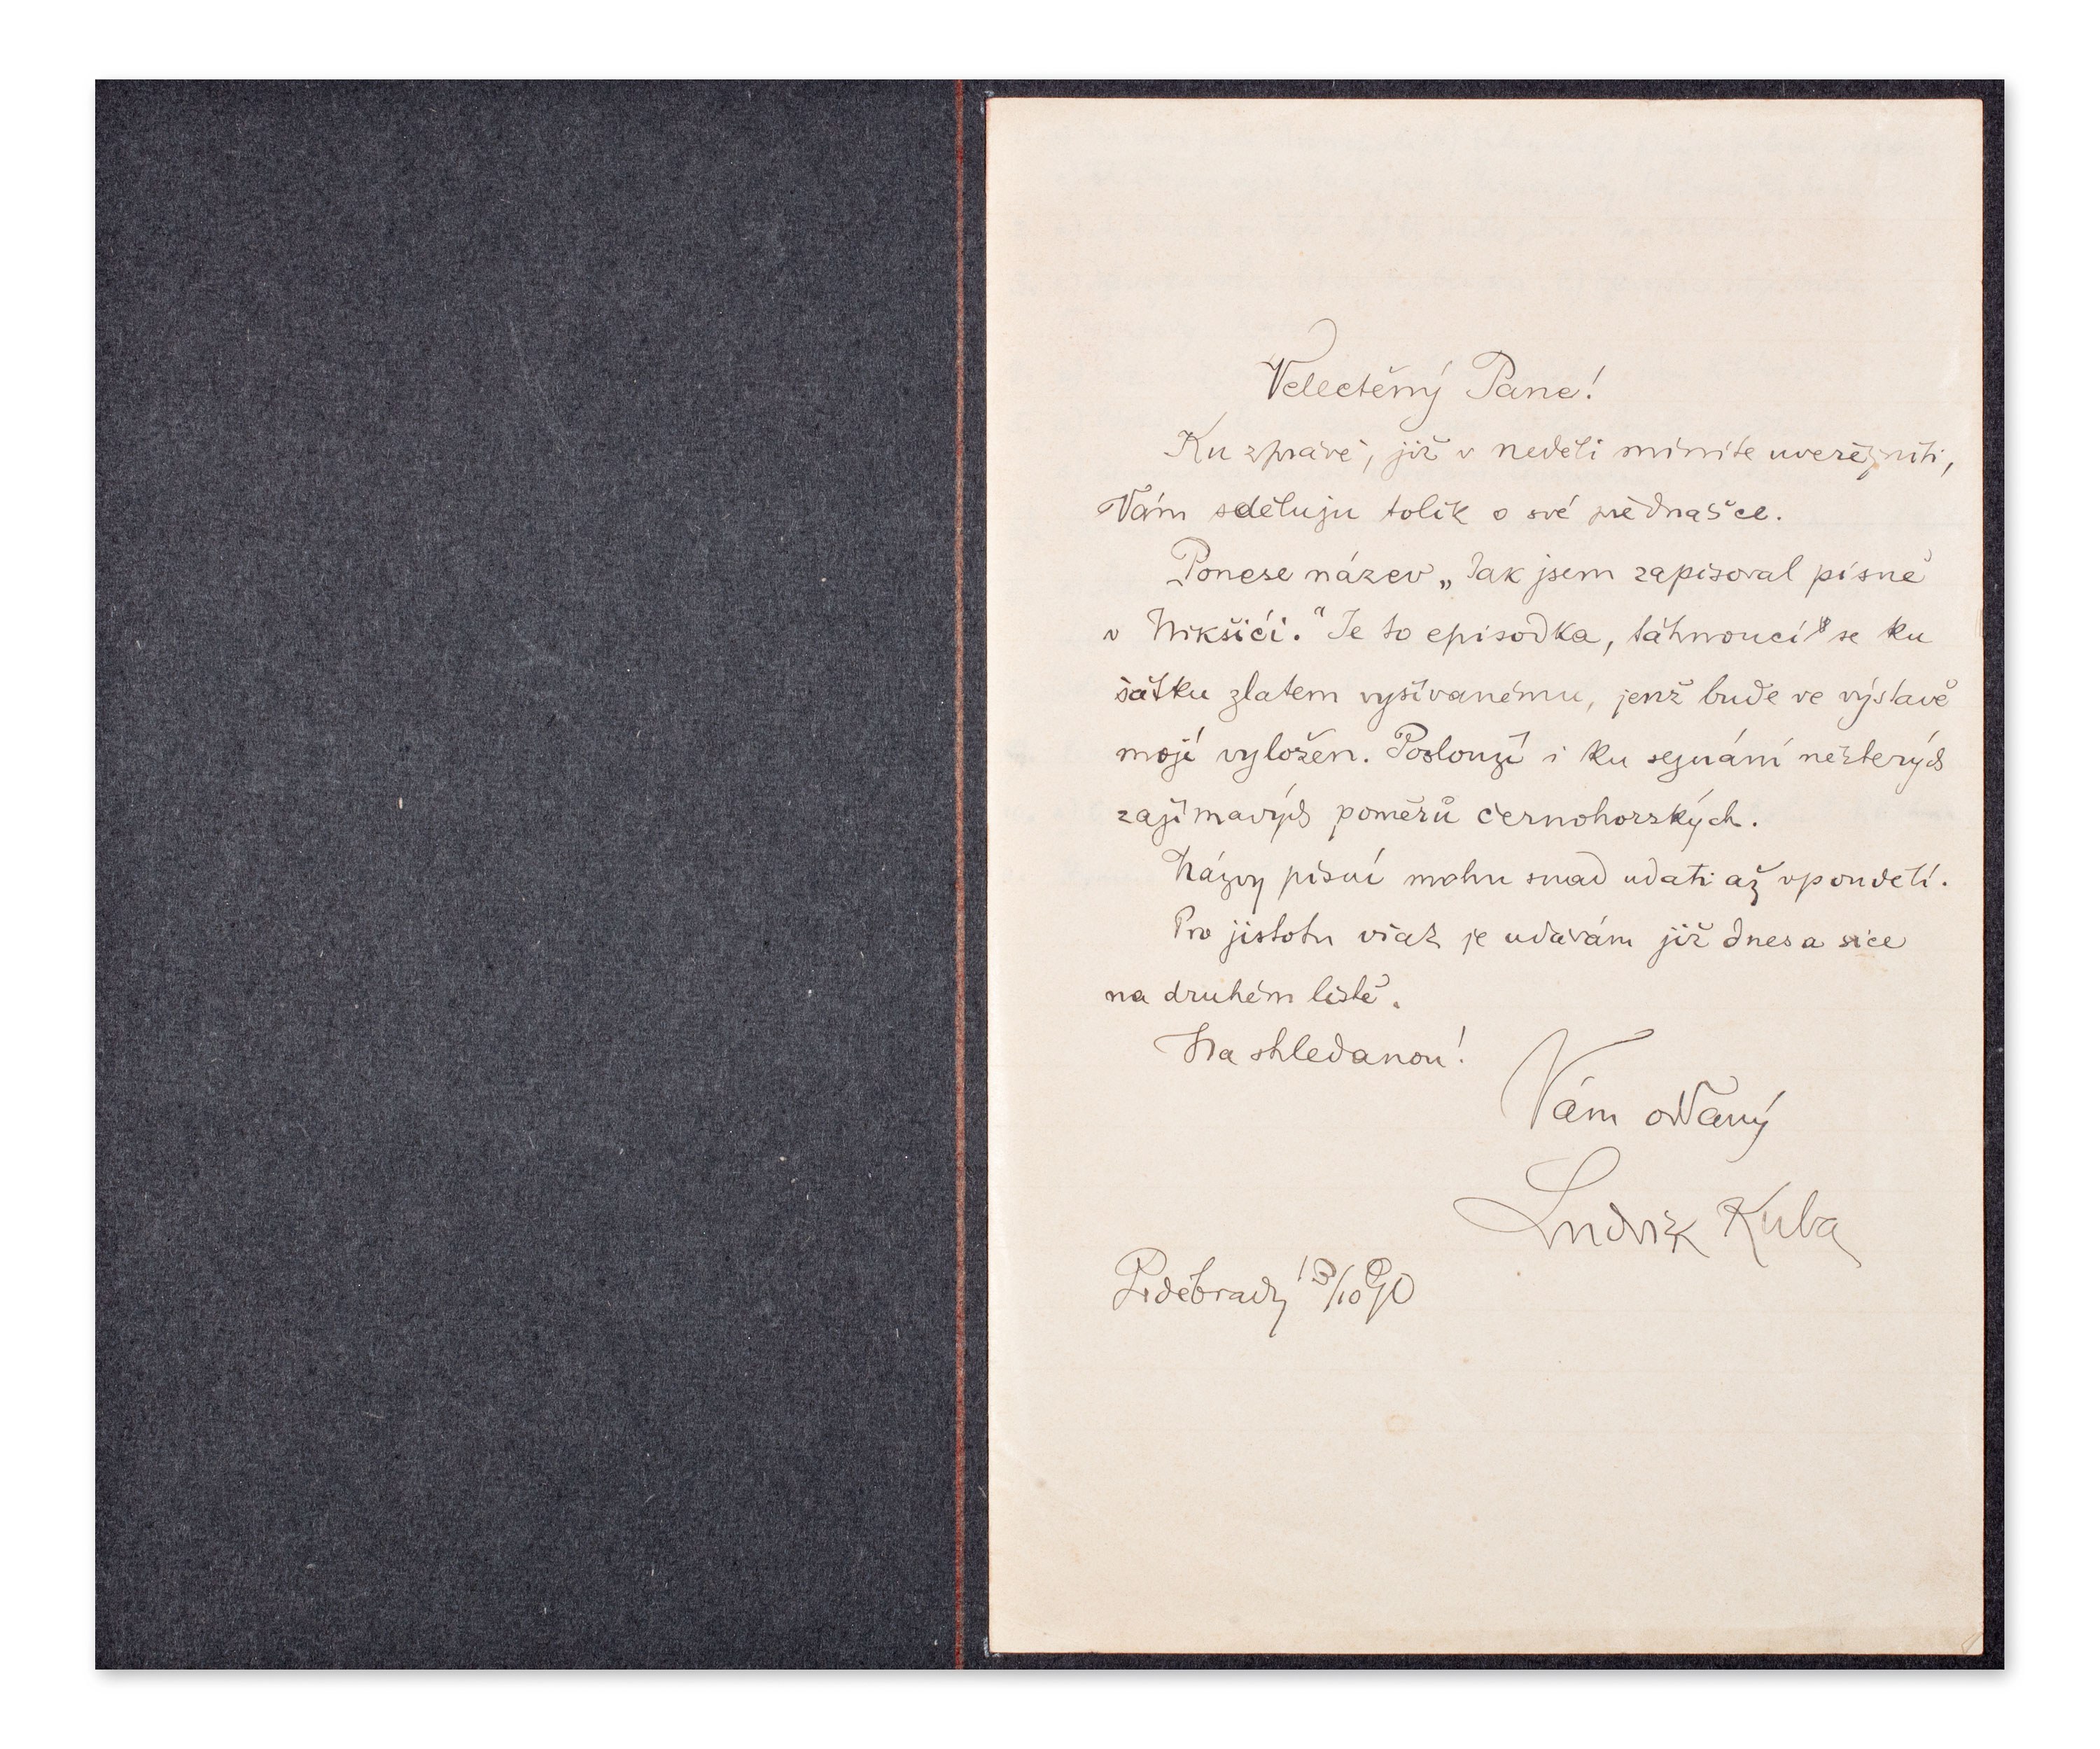 Velectěný Pane!
Ku zprávě, již v neděli míníte uveřejniti,
Vám sděluju tolik o své přednášce.
Ponese název „Jak jsem zapisoval písně
v Nikšići.“ Je to episodka, táhnoucí se ku
šátku zlatem vyšívanému, jenž bude ve výstavě
mojí vyložen. Poslouží i ku seznání některých
zajímavých poměrů černohorských.
Názvy písní mohu snad udati až v pondělí.
Pro jistotu však je udávám již dnes a sice
na druhém listě.
Na shledanou!
Vám oddaný
Ludvík Kuba
Poděbrady /10 90